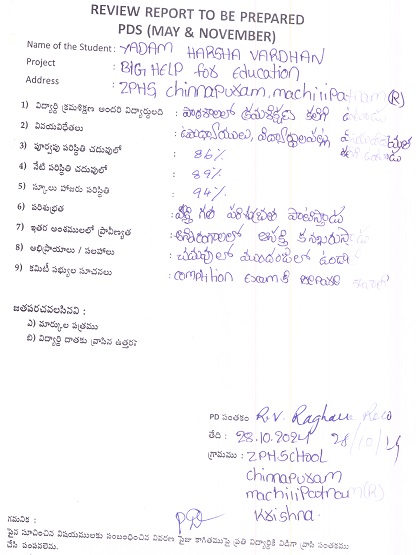 REVIEW REPORT TO BE PREPARED
PDS (MAY & NOVEMBER)
Name of the Student : YADAM HARSHA VARDHAN
Project : BIG HELP for Education
Address : ZPHS chinnapuram. machiliPatnam (R)
1) విద్యార్థి క్రమశిక్షణ అందరి విద్యార్థులది : పాఠశాలలో క్రమశిక్షణ కలిగి
2) వినయవిధేతలు : ఉపాధ్యాయులు,
3) పూర్వపు పరిస్థితి చదువులో : 86%
4) నేటి పరిస్థితి చదువులో : 89%
5) స్కూలు హాజరు పరిస్థితి : 94%
6) పరిశుభ్రత : వ్యక్తి గత పరిశుభ్రత పాటిస్తాడు
7) ఇతర అంశములలో ప్రావీణ్యత : ఆసక్తి కనబరుస్తాడు
8) అభిప్రాయాలు / సలహాలు : చదువులో ముందంజలో
9) కమిటీ సభ్యుల సూచనలు : compitition exam కి
జతపరచవలసినవి :
ఎ) మార్కుల పత్రము
బి) విద్యార్థి దాతకు వ్రాసిన ఉత్తరం
PD సంతకం : R.V. Raghava Rao
తేది : 28.10.2024 28/10/
గ్రామము : ZPHSCHOOL
chinnapuram
machiliPatnam (R)
Krishna.
గమనిక :
పైన సూచించిన విషయములకు సంబంధించిన వివరణ పైజు కాగితముపై ప్రతి విద్యార్థికి విడిగా వ్రాసి సంతకము
చేసి పంపవలెను.